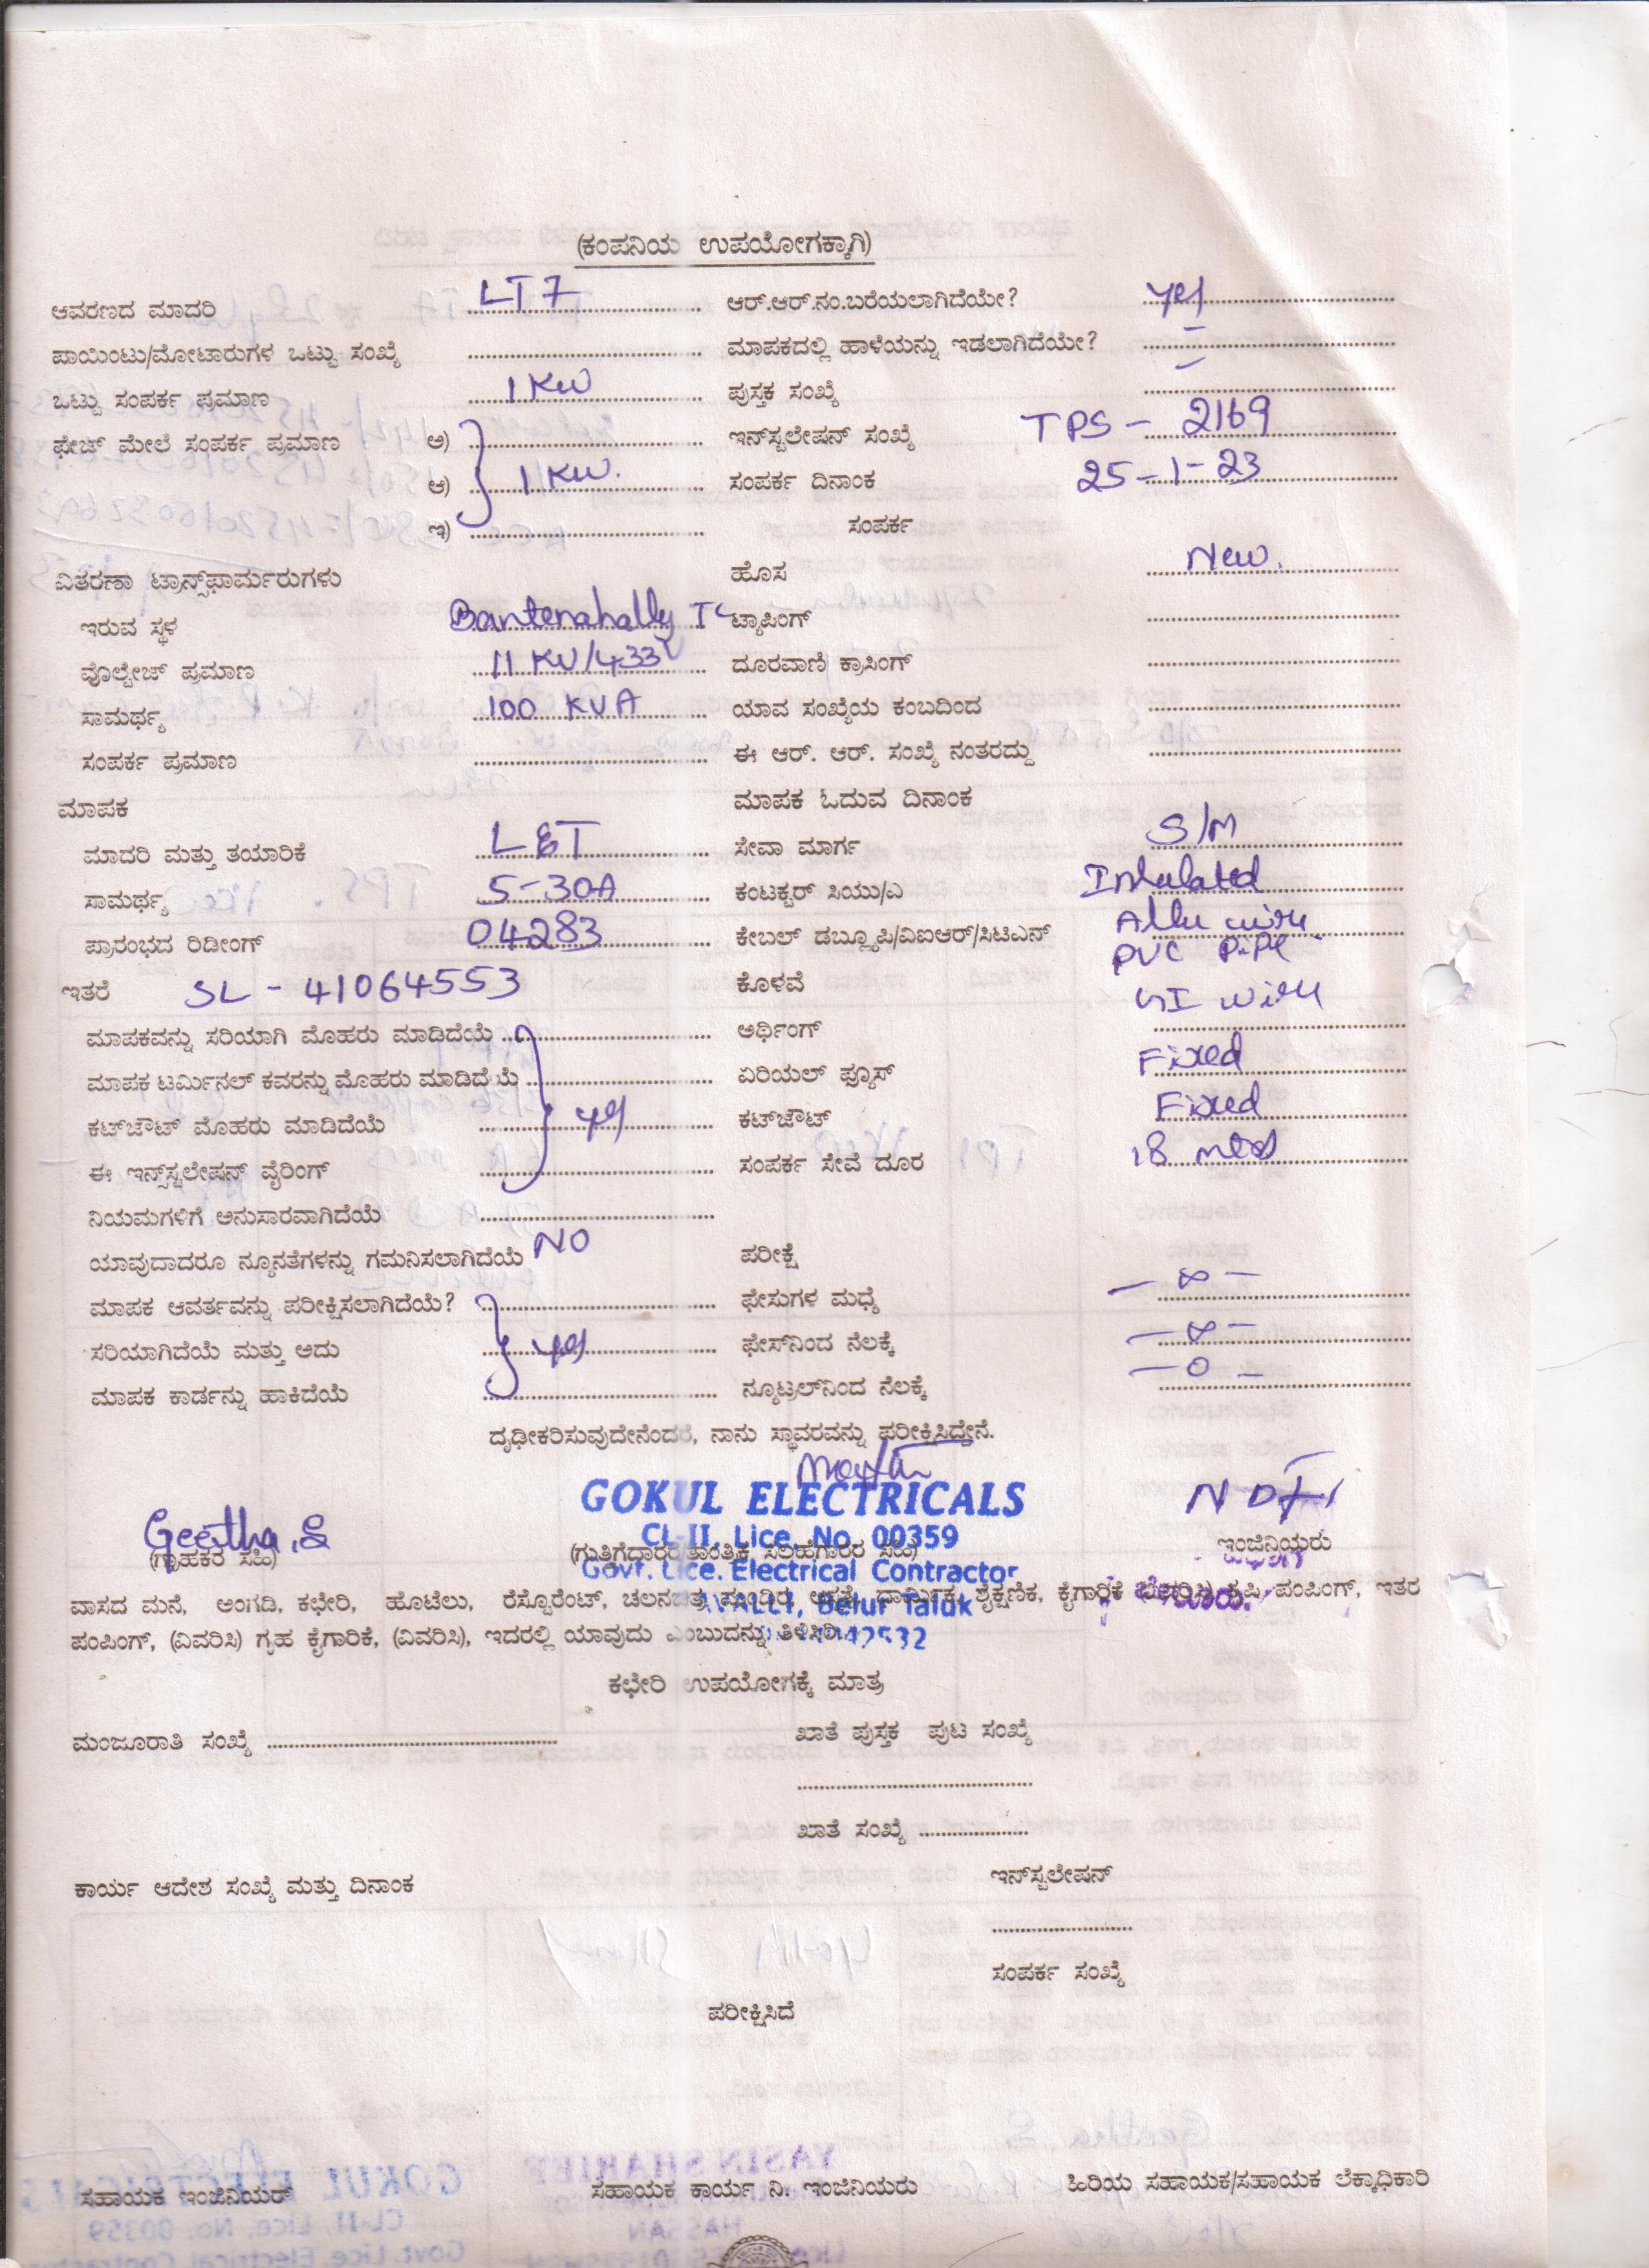 (ಕಂಪನಿಯ ಉಪಯೋಗಕ್ಕಾಗಿ)
ಆವರಣದ ಮಾದರಿ LT 7 ಆರ್.ಆರ್.ನಂ.ಬರೆಯಲಾಗಿದೆಯೇ? yes
ಪಾಯಿಂಟು/ಮೋಟಾರುಗಳ ಒಟ್ಟು ಸಂಖ್ಯೆ ಮಾಪಕದಲ್ಲಿ ಹಾಳೆಯನ್ನು ಇಡಲಾಗಿದೆಯೇ? –
ಒಟ್ಟು ಸಂಪರ್ಕ ಪ್ರಮಾಣ 1 KW ಪುಸ್ತಕ ಸಂಖ್ಯೆ –
ಫೇಜ್ ಮೇಲೆ ಸಂಪರ್ಕ ಪ್ರಮಾಣ ಅ) ಇನ್‌ಸ್ಟಲೇಷನ್ ಸಂಖ್ಯೆ TPS – 2169
ಆ) 1 KW. ಸಂಪರ್ಕ ದಿನಾಂಕ 25-1-23
ಇ) ಸಂಪರ್ಕ
ವಿತರಣಾ ಟ್ರಾನ್ಸ್‌ಫಾರ್ಮರುಗಳು ಹೊಸ New.
ಇರುವ ಸ್ಥಳ Bantenahally TC ಟ್ಯಾಪಿಂಗ್
ವೊಲ್ಟೇಜ್ ಪ್ರಮಾಣ 11 KV/433V ದೂರವಾಣಿ ಕ್ರಾಸಿಂಗ್
ಸಾಮರ್ಥ್ಯ 100 KVA ಯಾವ ಸಂಖ್ಯೆಯ ಕಂಬದಿಂದ
ಸಂಪರ್ಕ ಪ್ರಮಾಣ ಈ ಆರ್. ಆರ್. ಸಂಖ್ಯೆ ನಂತರದ್ದು
ಮಾಪಕ ಮಾಪಕ ಓದುವ ದಿನಾಂಕ
ಮಾದರಿ ಮತ್ತು ತಯಾರಿಕೆ L&T ಸೇವಾ ಮಾರ್ಗ S/M
ಸಾಮರ್ಥ್ಯ 5-30A ಕಂಟಕ್ಟರ್ ಸಿಯು/ಎ Insulated
ಪ್ರಾರಂಭದ ರಿಡೀಂಗ್ 04283 ಕೇಬಲ್ ಡಬ್ಲ್ಯೂಪಿ/ವಿಐಆರ್/ಸಿಟಿಎನ್ Allu wire
PVC PiPe
ಇತರೆ SL - 41064553 ಕೊಳವೆ GI wire
ಮಾಪಕವನ್ನು ಸರಿಯಾಗಿ ಮೊಹರು ಮಾಡಿದೆಯೆ ಅರ್ಥಿಂಗ್
ಮಾಪಕ ಟರ್ಮಿನಲ್ ಕವರನ್ನು ಮೊಹರು ಮಾಡಿದೆಯೆ ಏರಿಯಲ್ ಫ್ಯೂಸ್ Fixed
ಕಟ್‌ಔಟ್ ಮೊಹರು ಮಾಡಿದೆಯೆ yes ಕಟ್‌ಔಟ್ Fixed
ಈ ಇನ್ಸ್‌ಸ್ಟಲೇಷನ್ ವೈರಿಂಗ್ ಸಂಪರ್ಕ ಸೇವೆ ದೂರ 18 mtrs
ನಿಯಮಗಳಿಗೆ ಅನುಸಾರವಾಗಿದೆಯೆ
ಯಾವುದಾದರೂ ನ್ಯೂನತೆಗಳನ್ನು ಗಮನಿಸಲಾಗಿದೆಯೆ NO ಪರೀಕ್ಷೆ
ಮಾಪಕ ಆವರ್ತವನ್ನು ಪರೀಕ್ಷಿಸಲಾಗಿದೆಯೆ? ಫೇಸುಗಳ ಮಧ್ಯೆ – ∞ –
ಸರಿಯಾಗಿದೆಯೆ ಮತ್ತು ಅದು yes ಫೇಸ್‌ನಿಂದ ನೆಲಕ್ಕೆ – ∞ –
ಮಾಪಕ ಕಾರ್ಡನ್ನು ಹಾಕಿದೆಯೆ ನ್ಯೂಟ್ರಲ್‌ನಿಂದ ನೆಲಕ್ಕೆ – 0 –
ದೃಢೀಕರಿಸುವುದೇನೆಂದರೆ, ನಾನು ಸ್ಥಾವರವನ್ನು ಪರೀಕ್ಷಿಸಿದ್ದೇನೆ.
GOKUL ELECTRICALS
Geetha.S CL-II, Lice. No. 00359 ಇಂಜಿನಿಯರು
(ಗ್ರಾಹಕರ ಸಹಿ) (ಗುತ್ತಿಗೆದಾರರ/ತಾಂತ್ರಿಕ ಸಲಹೆಗಾರರ ಸಹಿ)
Govt. Lice. Electrical Contractor
ವಾಸದ ಮನೆ, ಅಂಗಡಿ, ಕಛೇರಿ, ಹೊಟೆಲು, ರೆಸ್ಟೊರೆಂಟ್, ಚಲನಚಿತ್ರ ಮಂದಿರ, ಆಸ್ಪತ್ರೆ, ಧಾರ್ಮಿಕ, ಶೈಕ್ಷಣಿಕ, ಕೈಗಾರಿಕೆ (ವಿವರಿಸಿ) ಕೃಷಿ ಪಂಪಿಂಗ್, ಇತರ
Belur Taluk
ಪಂಪಿಂಗ್, (ವಿವರಿಸಿ) ಗೃಹ ಕೈಗಾರಿಕೆ, (ವಿವರಿಸಿ), ಇದರಲ್ಲಿ ಯಾವುದು ಎಂಬುದನ್ನು ತಿಳಿಸಿರಿ.
ಕಛೇರಿ ಉಪಯೋಗಕ್ಕೆ ಮಾತ್ರ
ಮಂಜೂರಾತಿ ಸಂಖ್ಯೆ ಖಾತೆ ಪುಸ್ತಕ ಪುಟ ಸಂಖ್ಯೆ
ಖಾತೆ ಸಂಖ್ಯೆ
ಕಾರ್ಯ ಆದೇಶ ಸಂಖ್ಯೆ ಮತ್ತು ದಿನಾಂಕ ಇನ್‌ಸ್ಟಲೇಷನ್
ಸಂಪರ್ಕ ಸಂಖ್ಯೆ
ಪರೀಕ್ಷಿಸಿದೆ
ಸಹಾಯಕ ಇಂಜಿನಿಯರ್ ಸಹಾಯಕ ಕಾರ್ಯ ನಿ. ಇಂಜಿನಿಯರು ಹಿರಿಯ ಸಹಾಯಕ/ಸಹಾಯಕ ಲೆಕ್ಕಾಧಿಕಾರಿ